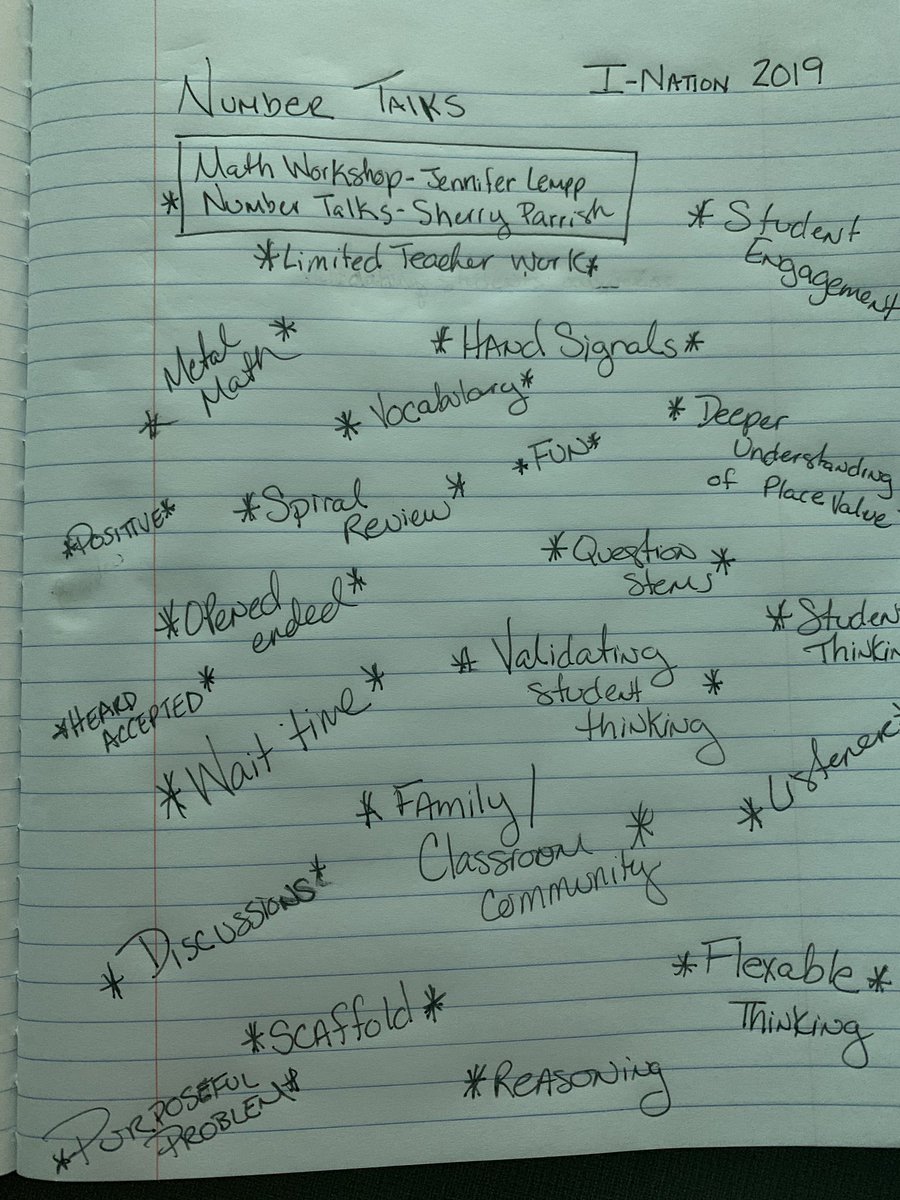 I-NATION 2019
NUMBER TALKS
Math Workshop - Jennifer Lempp
* Number Talks - Sherry Parrish
*LIMITED TEACHER WORK*
* STUDENT
ENGAGEMENT
Metal *
* Math
*HAND Signals*
* Vocabulary*
* Deeper
Understanding
of Place Value
*FUN*
*Spiral *
Review
*POSITIVE*
*Question *
stems
*Opened *
ended
* Studen
Thinkin
* Validating
student *
thinking
*HEARD *
ACCEPTED
*Wait time *
* Listener*
* FAmily/
Classroom *
Community
* Discussions*
*Flexable *
Thinking
*SCAffold *
*REASONING
*PURPOSEFUL
PROBLEM*